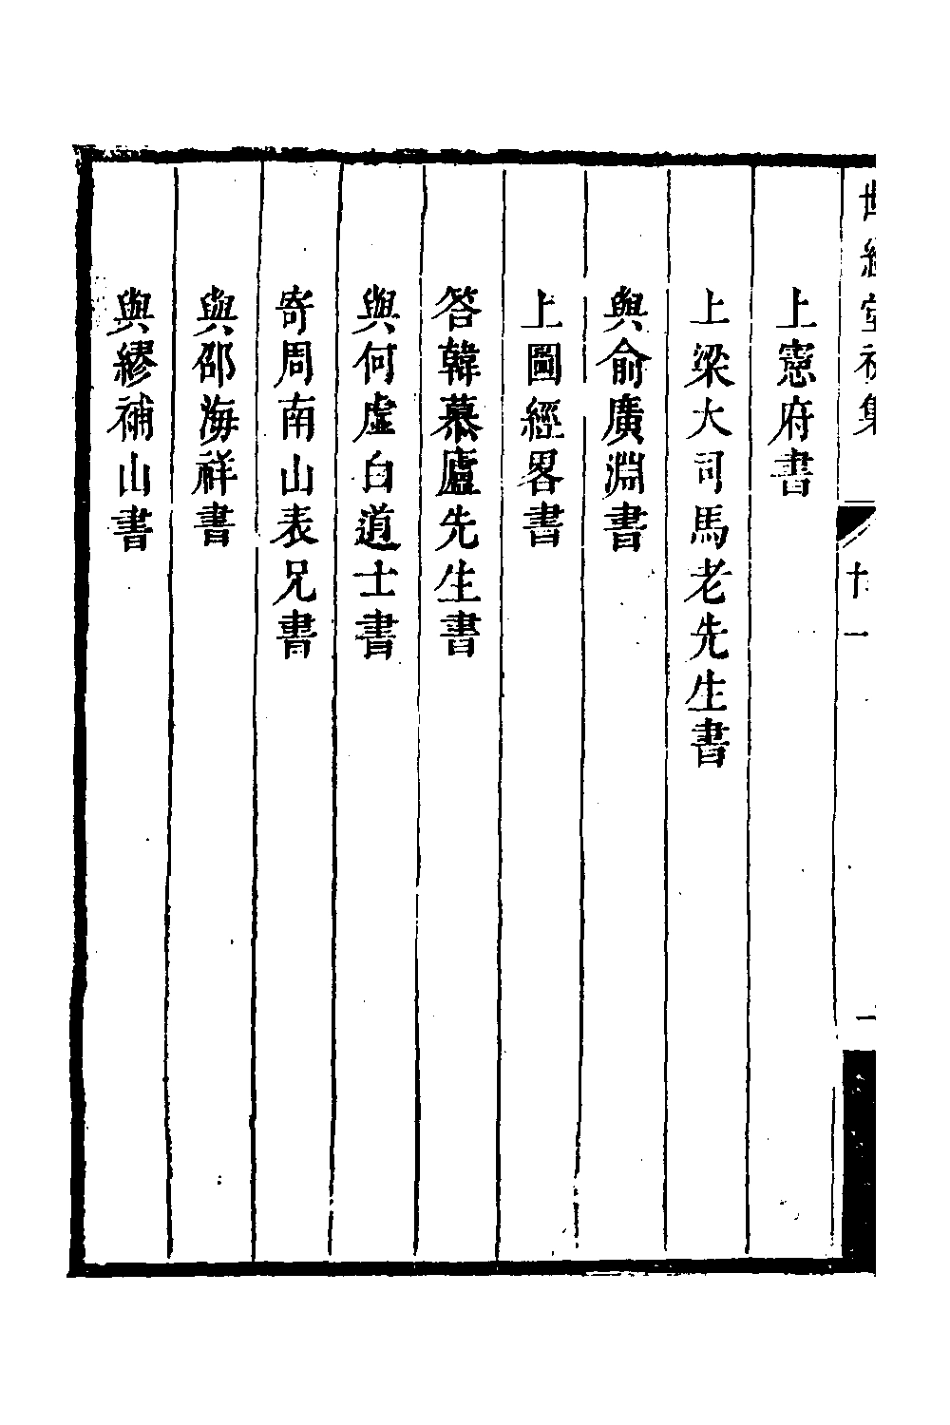 世經堂初集
上憲府書
上梁大司馬老先生書
與俞廣淵書
上圖經畧書
答韓慕廬先生書
與何虛白道士書
寄周南山表兄書
與邵海祥書
與繆補山書